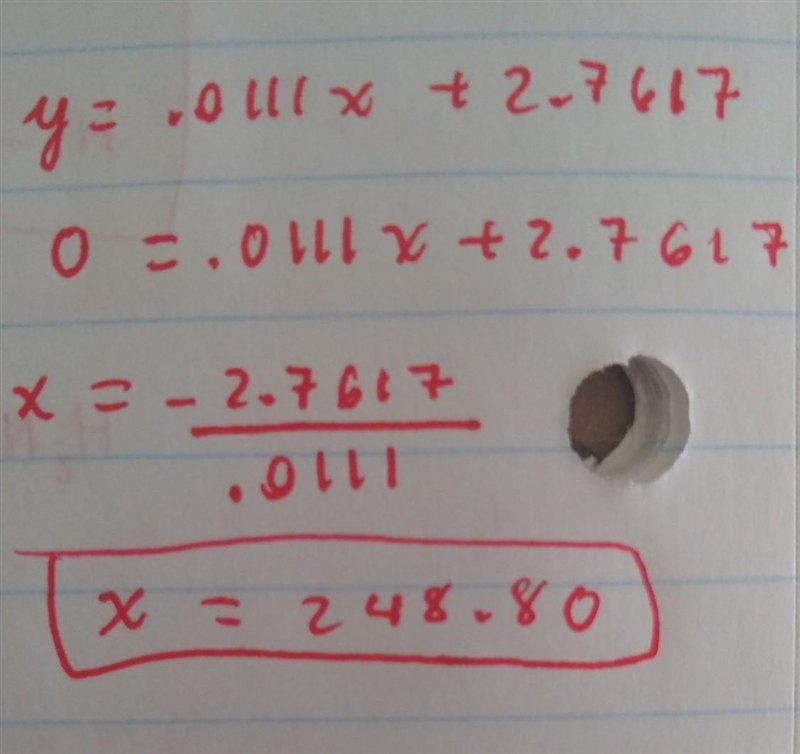 y = .0111x + 2.7617
0 = .0111x + 2.7617
x = - 2.7617
.0111
x = 248.80